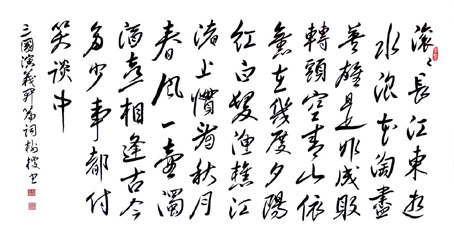 滚々長江東逝
水浪花淘盡
英雄是非成敗
轉頭空青山依
舊在幾度夕陽
红白髮漁樵江
渚上慣看秋月
春風一壺濁
酒喜相逢古今
多少事都付
笑谈中
三國演義開篇词